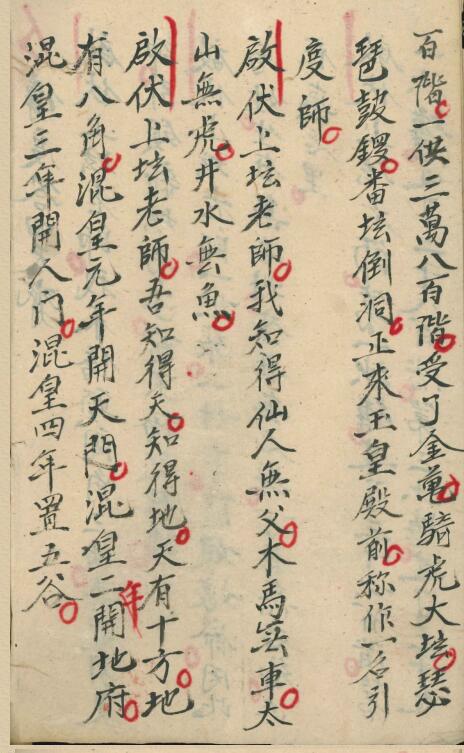 百階一供三萬八百階受了金萬騎虎大坛瑟
琶鼓鑼番坛倒洞正來玉皇殿前称作一名引
度師
啟伏上坛老師我知得仙人無父木馬無車太
山無虎井水無魚
啟伏上坛老師吾知得天知得地天有十方地
有八角混皇元年開天門混皇二年開地府
混皇三年開人门混皇四年置五谷